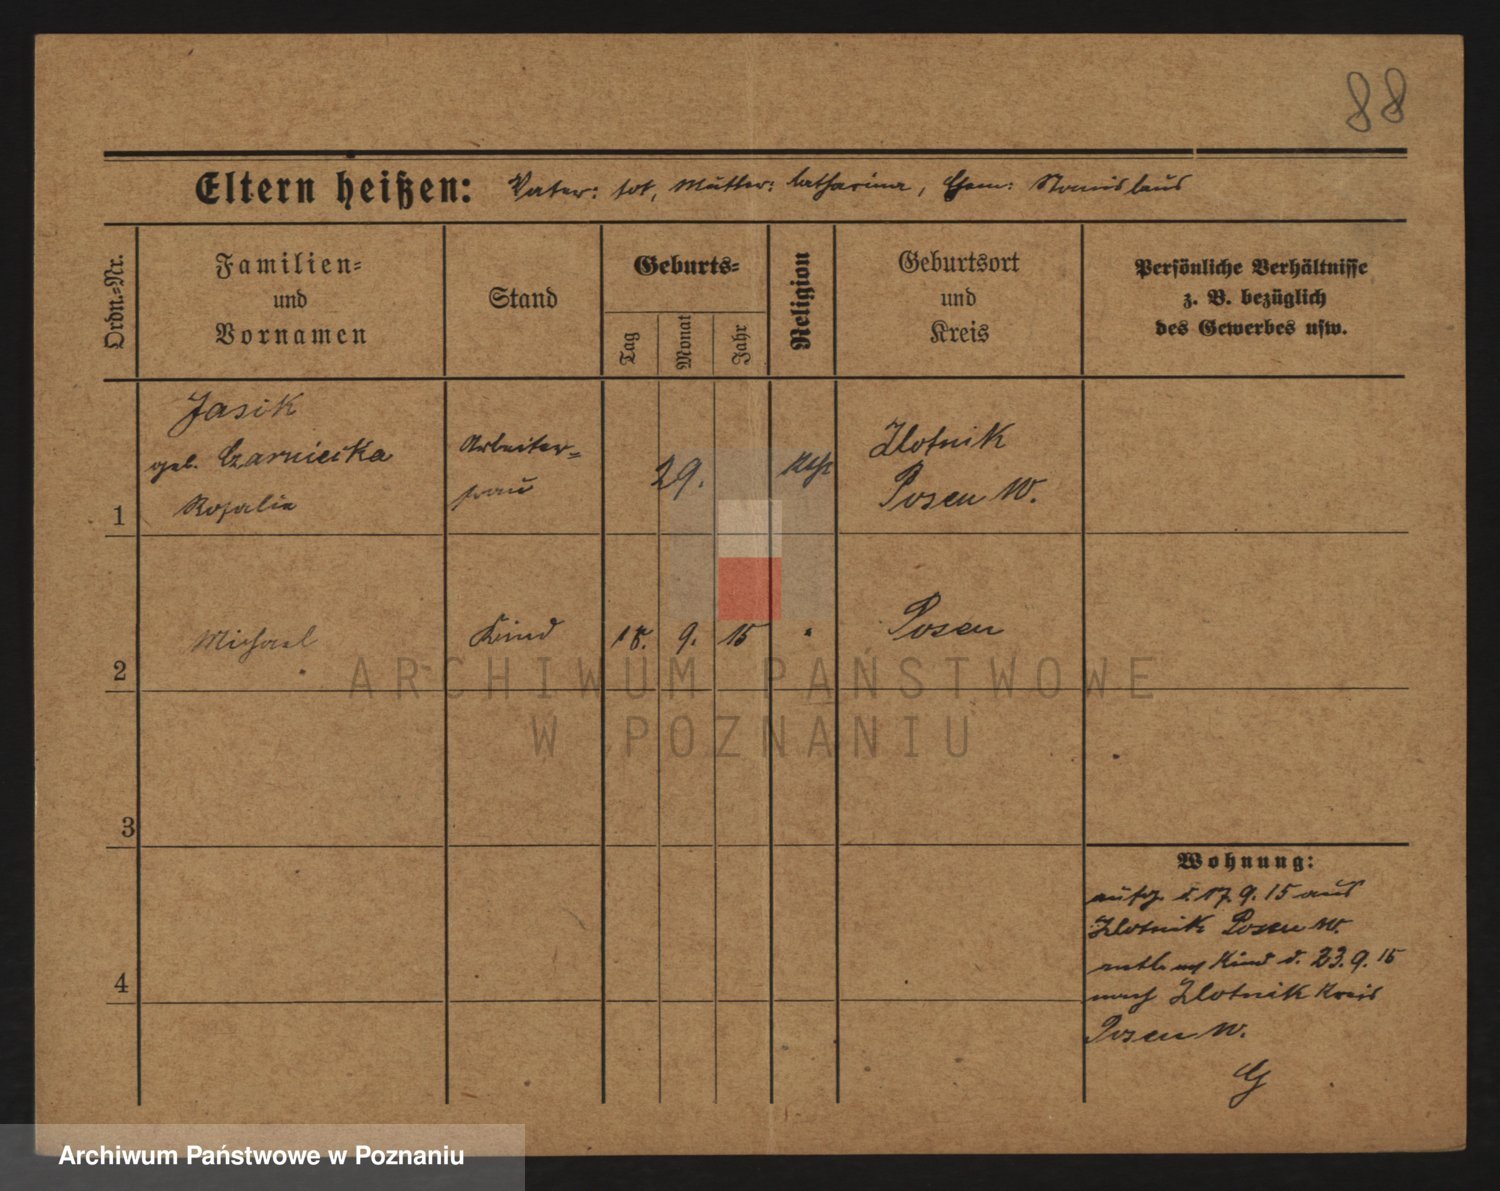 88
Eltern heißen: Vater: tot, Mutter: Catharina, Ehem: Stanislaus
Ordn.-Nr.
Familien-
und
Vornamen
Stand
Geburts-
Tag
Monat
Jahr
Religion
Geburtsort
und
Kreis
Persönliche Verhältnisse
z. B. bezüglich
des Gewerbes usw.
1
Jasik
geb. Czarniecka
Rosalie
Arbeiter-
frau
29.
Kth
Zlotnik
Posen W.
2
Michael
Kind
18. 9. 15
"
Posen
3
4
Wohnung:
aufg. d. 17. 9. 15 aus
Zlotnik Posen W.
entl. m Kind d. 23. 9. 15
nach Zlotnik Kreis
Posen W.
G
ARCHIWUM PAŃSTWOWE
W POZNANIU
Archiwum Państwowe w Poznaniu